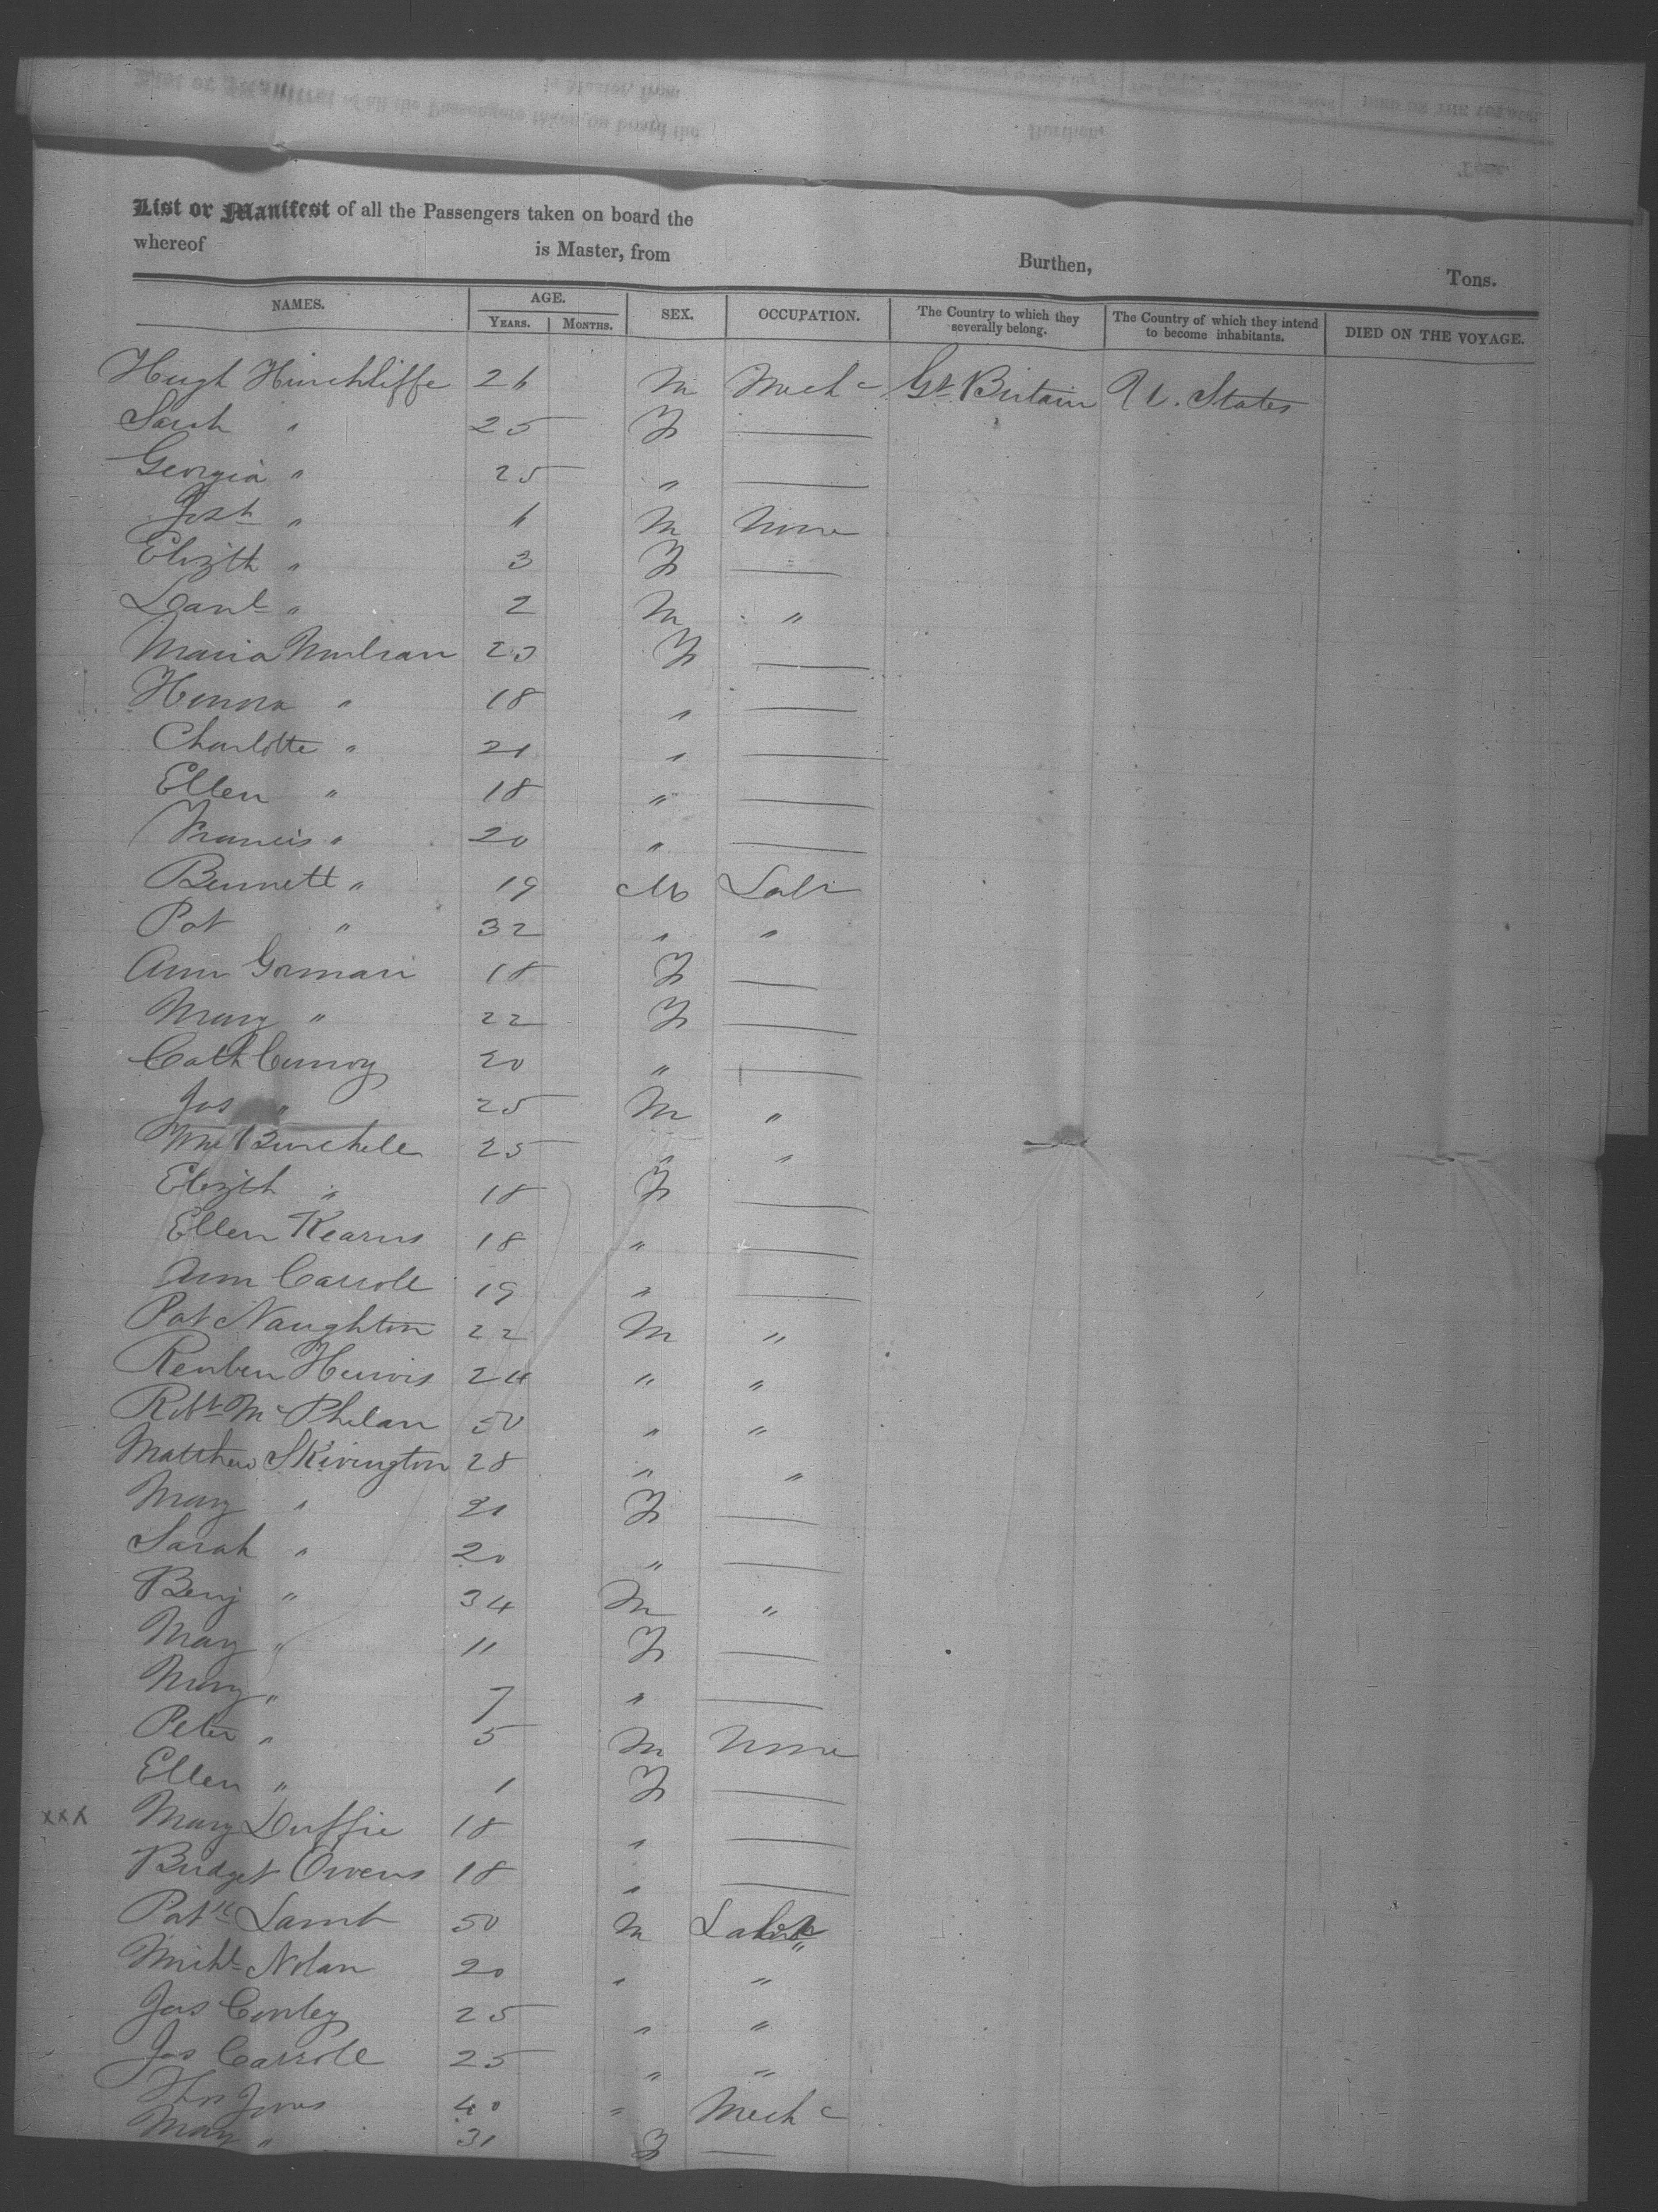 List or Manifest of all the Passengers taken on board the
whereof is Master, from Burthen, Tons.
NAMES. AGE. SEX. OCCUPATION. The Country to which they severally belong. The Country of which they intend to become inhabitants. DIED ON THE VOYAGE.
YEARS. MONTHS.
Hugh Hinchliffe 26 M Mechc Gt Britain U. States
Sarah " 25 F
Georgia " 25 "
Josh " 6 M None
Elizth " 3 F
Danl " 2 M "
Maria 23 F
Honora " 18 "
Charlotte " 21 "
Ellen " 18 "
Francis " 20 "
Bennett " 19 M Labr
Pat " 32 " "
Ann Gorman 18 F
Mary " 22 F
Cath 20 "
Jas " 25 M "
Wm Burchell 25 " "
Elizth " 18 F
Ellen Kearns 18 "
Ann Carroll 19 "
Pat Naughton 22 M "
Reuben 24 " "
Robt McPhelan 50 " "
Matthew Skivington 28 " "
Mary " 21 F
Sarah " 20 "
Benj " 34 M "
Mary " 11 F
Mary " 7 "
Peter " 5 M None
Ellen " 1 F
xxx Mary Duffie 18 "
Bridget Owens 18 "
Patk Lamb 50 M Labr
Michl Nolan 20 " "
Jas Conley 25 " "
Jas Carroll 25 " "
Thos Jones 40 " Mechc
Mary " 31 F